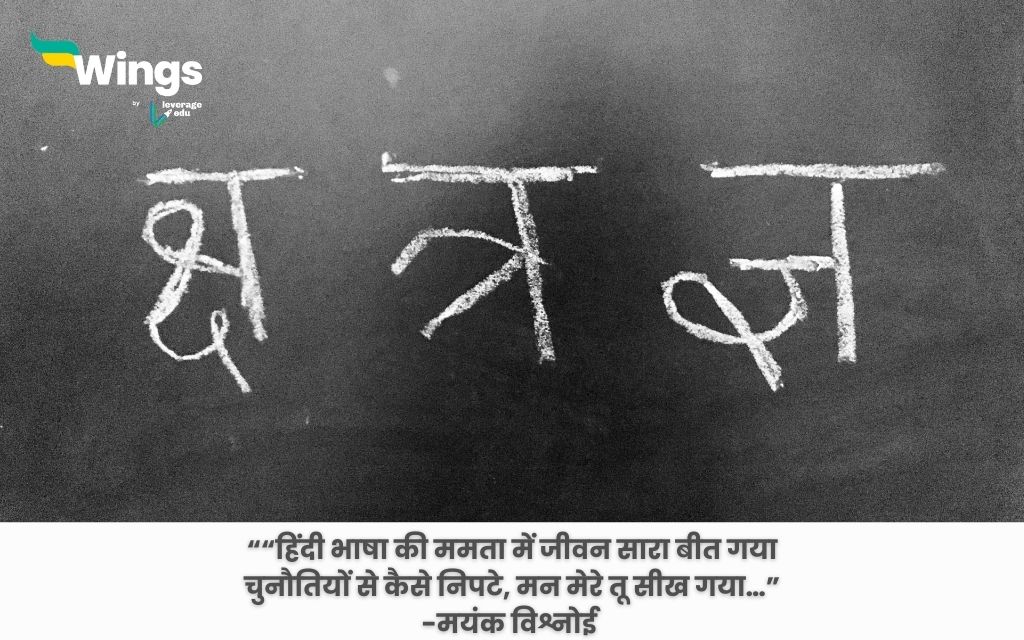 Wings
by leverage edu
क्ष त्र ज्ञ
““हिंदी भाषा की ममता में जीवन सारा बीत गया
चुनौतियों से कैसे निपटे, मन मेरे तू सीख गया...”
-मयंक विश्नोई